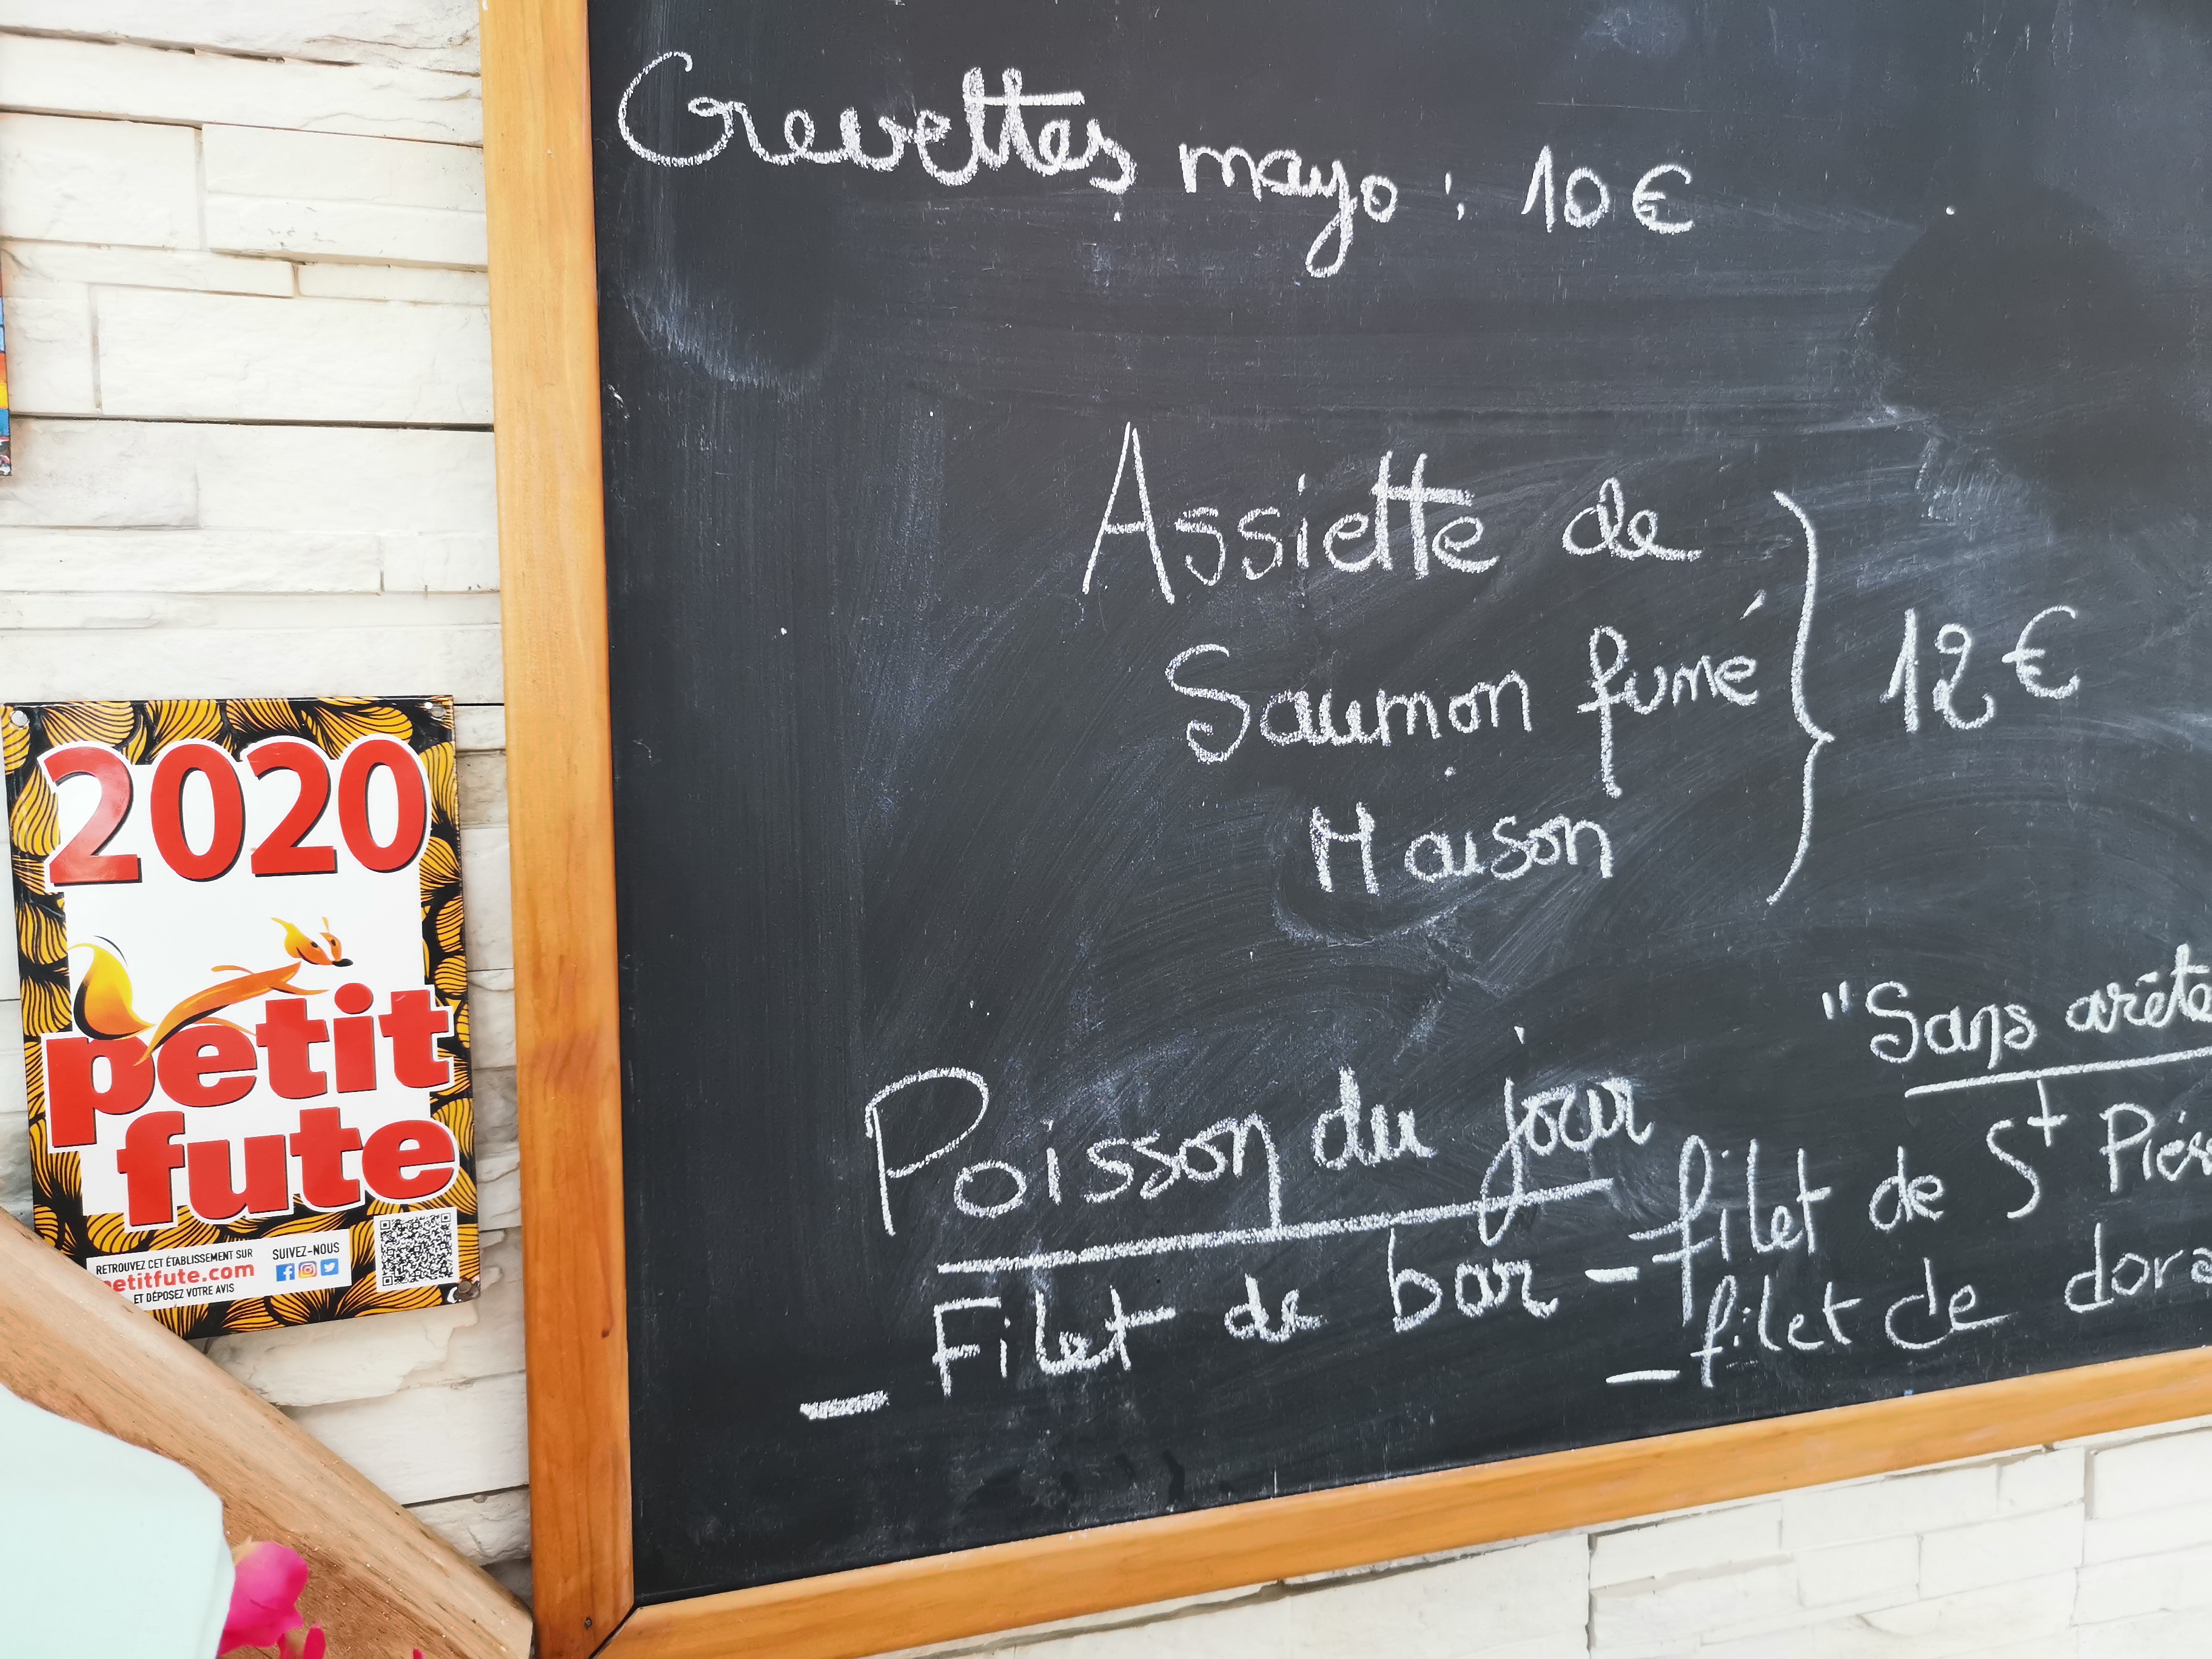 Crevettes mayo : 10 €
Assiette de
Saumon fumé
Maison
12 €
"Sans arête
Poisson du jour
_ Filet de bar - filet de St Piér
_ filet de dora
2020
petit
fute
RETROUVEZ CET ÉTABLISSEMENT SUR
petitfute.com
ET DÉPOSEZ VOTRE AVIS
SUIVEZ-NOUS